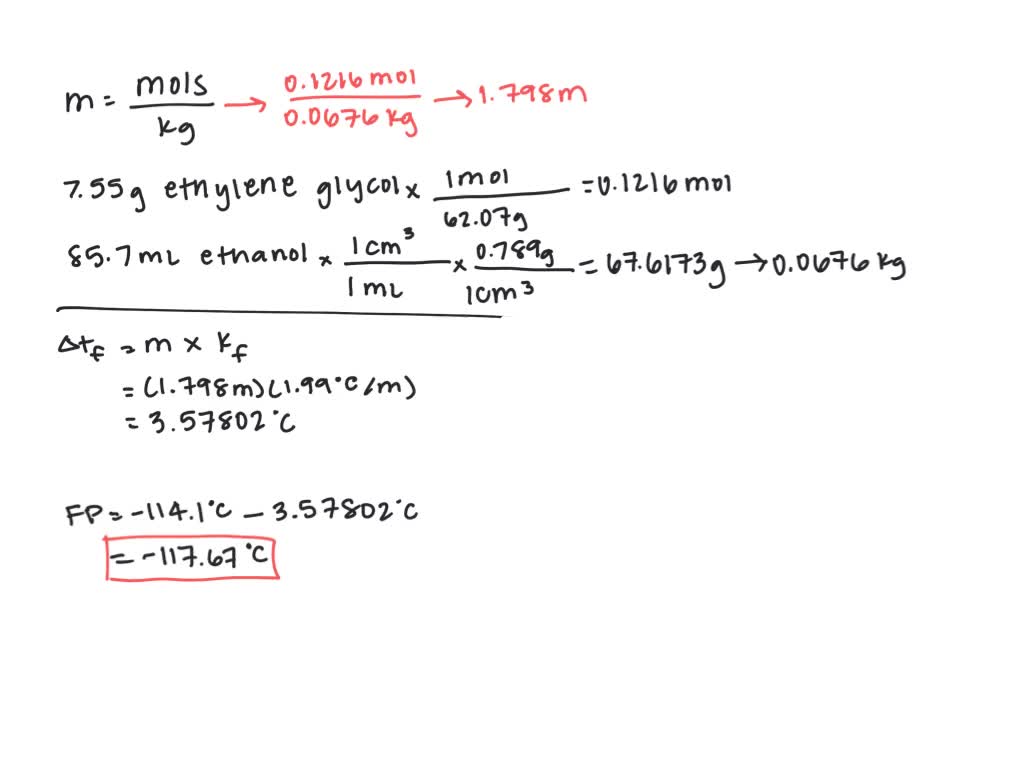 m = mols/kg → 0.1216 mol/0.0676 kg → 1.798m
7.55g ethylene glycol x 1mol/62.07g = 0.1216 mol
85.7mL ethanol x 1cm³/1mL x 0.789g/1cm³ = 67.6173g → 0.0676 kg
Δtf = m x Kf
= (1.798m)(1.99°C/m)
= 3.57802°C
FP = -114.1°C - 3.57802°C
= -117.67°C